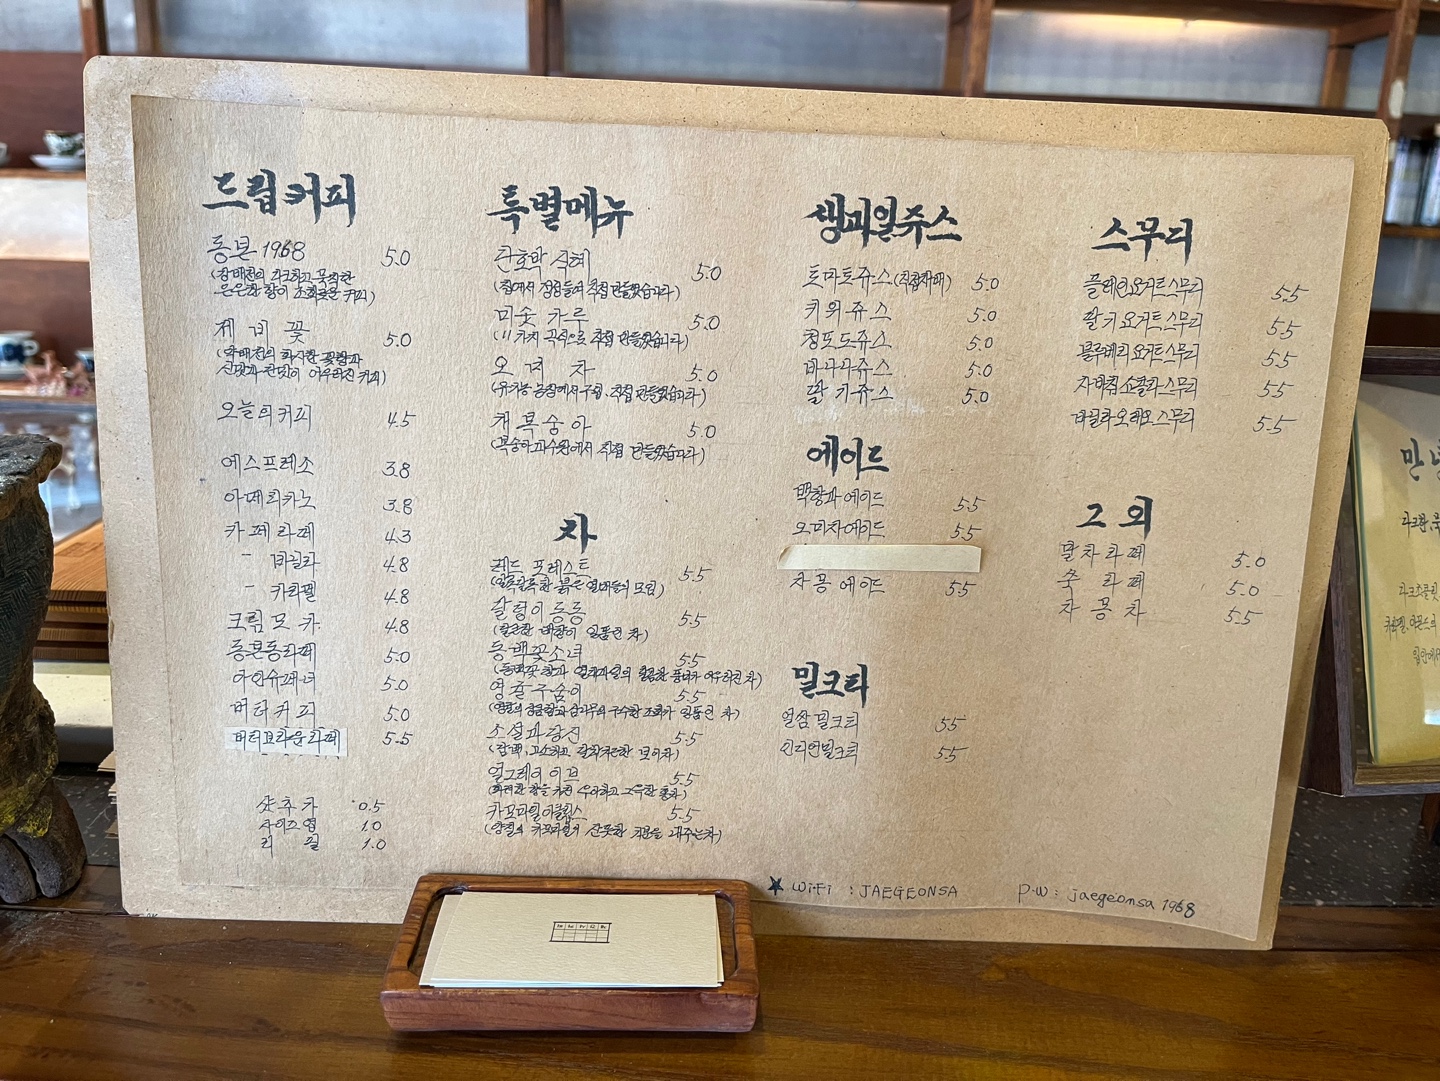 드립커피
동본 1968 5.0
은은한 향이 조화로운 커피)
제비꽃 5.0
신맛과 단맛이 어우러진 커피)
오늘의커피 4.5
에스프레소 3.8
아메리카노 3.8
카페라떼 4.3
" 바닐라 4.8
" 카라멜 4.8
크림모카 4.8
동본동라떼 5.0
아인슈페너 5.0
버터커피 5.0
버터브라운라떼 5.5
샷추가 0.5
사이즈업 1.0
리필 1.0
특별메뉴
단호박 식혜 5.0
직접 만들었습니다)
미숫가루 5.0
(11가지 곡식으로 직접 만들었습니다)
오미자 5.0
(유기농 농장에서 구입, 직접 만들었습니다)
개복숭아 5.0
(복숭아과수원에서 직접 만들었습니다)
차
레드 프레스트 5.5
(알록달록한 붉은 열매들의 모임)
달덩이 둥둥 5.5
(달콤한 배향이 일품인 차)
동백꽃소녀 5.5
(동백꽃향과 열대과일의 달콤한 풍미가 어우러진 차)
영귤구슬이 5.5
일품인 차)
소설과당진 5.5
얼그레이 이브 5.5
홍차)
카모마일이클립스 5.5
(양질의 카모마일의 산뜻한 기운을 내주는차)
생과일쥬스
토마토쥬스(직접재배) 5.0
키위쥬스 5.0
청포도쥬스 5.0
바나나쥬스 5.0
딸기쥬스 5.0
에이드
백향과에이드 5.5
오미자에이드 5.5
자몽에이드 5.5
밀크티
얼쌈밀크티 5.5
인디언밀크티 5.5
스무디
플레인요거트스무디 5.5
딸기요거트스무디 5.5
블루베리요거트스무디 5.5
자바칩쇼콜라스무디 5.5
바닐라오레오스무디 5.5
그 외
말차라떼 5.0
쑥라떼 5.0
자몽차 5.5
★ WiFi : JAEGEONSA P.W : jaegeonsa 1968